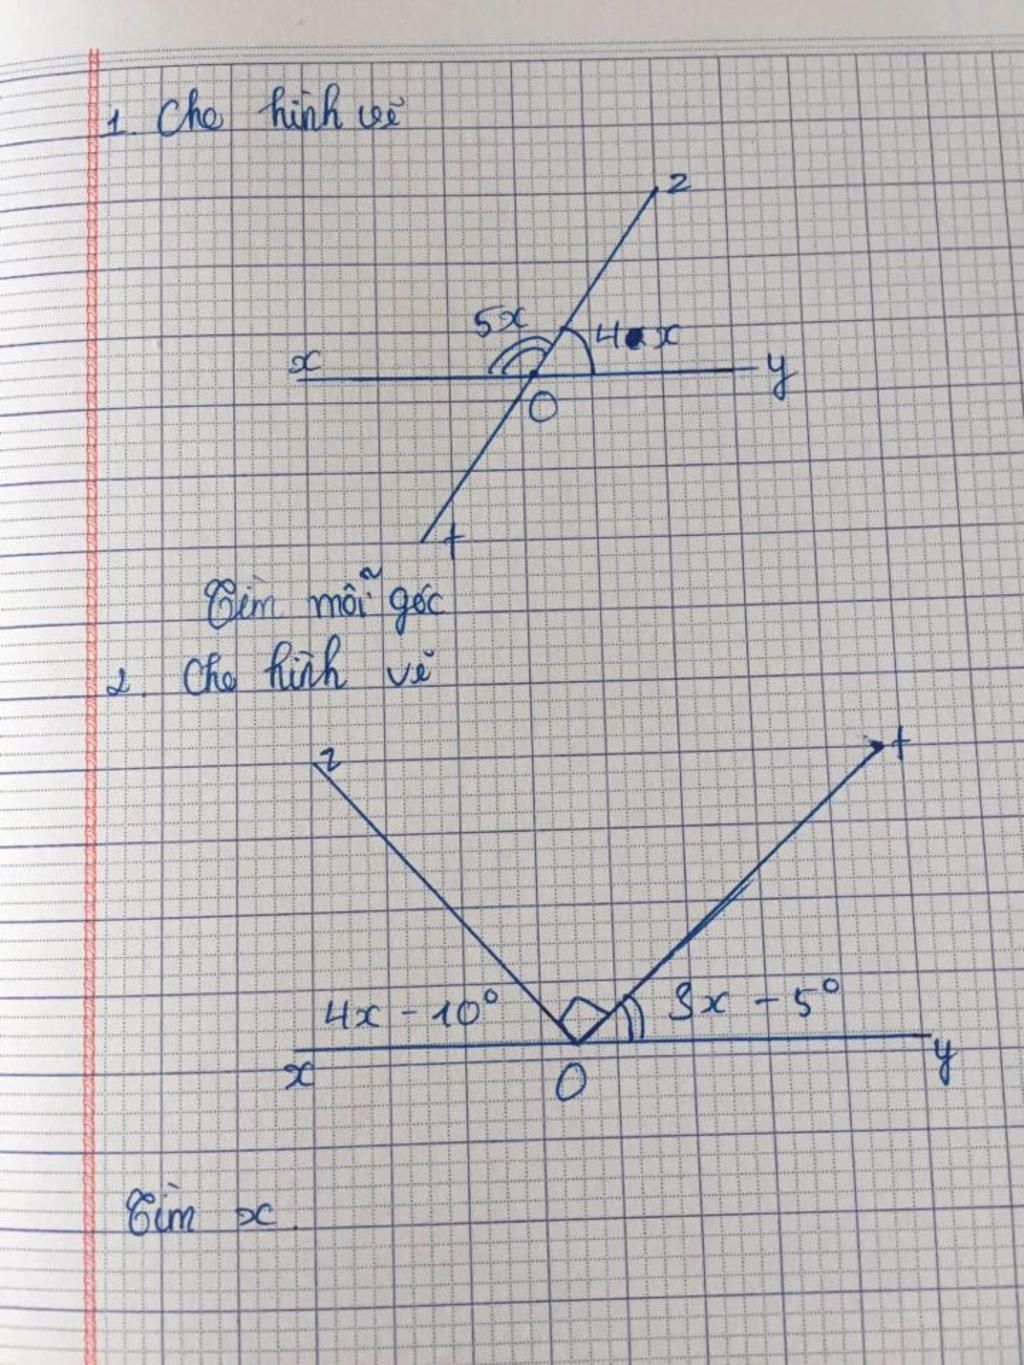 1. Cho hình vẽ
z
5x 4x
x y
O
t
Tìm mỗi góc
2. Cho hình vẽ
z t
4x - 10° 3x - 5°
x O y
Tìm x.